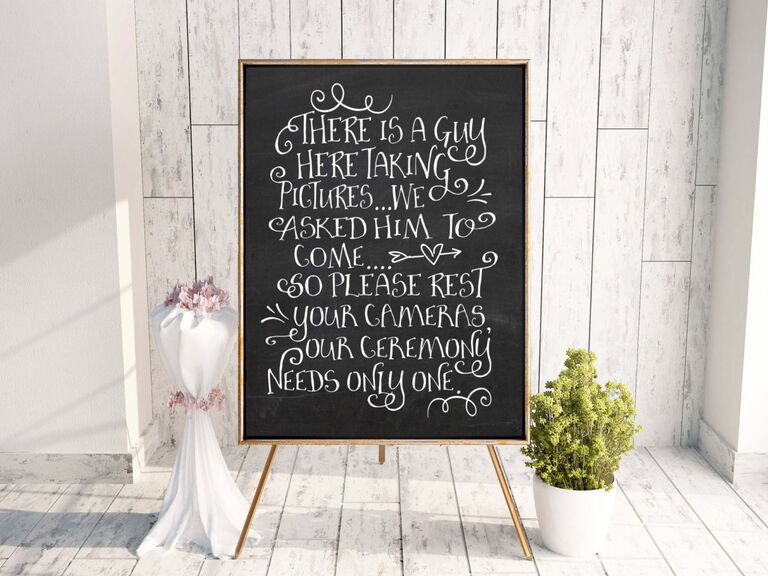 THERE IS A GUY
HERE TAKING
PICTURES...WE
ASKED HIM TO
COME....
SO PLEASE REST
YOUR CAMERAS,
OUR CEREMONY
NEEDS ONLY ONE.